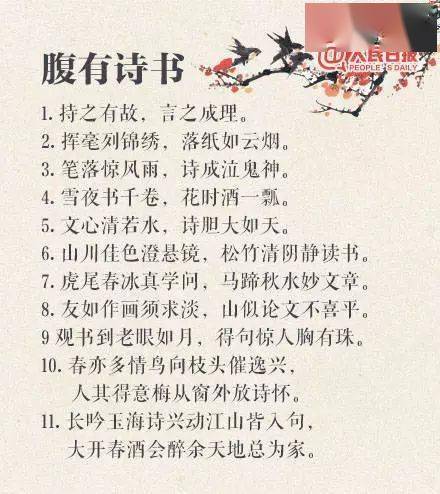 人民日报
PEOPLE'S DAILY
腹有诗书
1. 持之有故，言之成理。
2. 挥毫列锦绣，落纸如云烟。
3. 笔落惊风雨，诗成泣鬼神。
4. 雪夜书千卷，花时酒一瓢。
5. 文心清若水，诗胆大如天。
6. 山川佳色澄悬镜，松竹清阴静读书。
7. 虎尾春冰真学问，马蹄秋水妙文章。
8. 友如作画须求淡，山似论文不喜平。
9 观书到老眼如月，得句惊人胸有珠。
10. 春亦多情鸟向枝头催逸兴，
人其得意梅从窗外放诗怀。
11. 长吟玉海诗兴动江山皆入句，
大开春酒会醉余天地总为家。